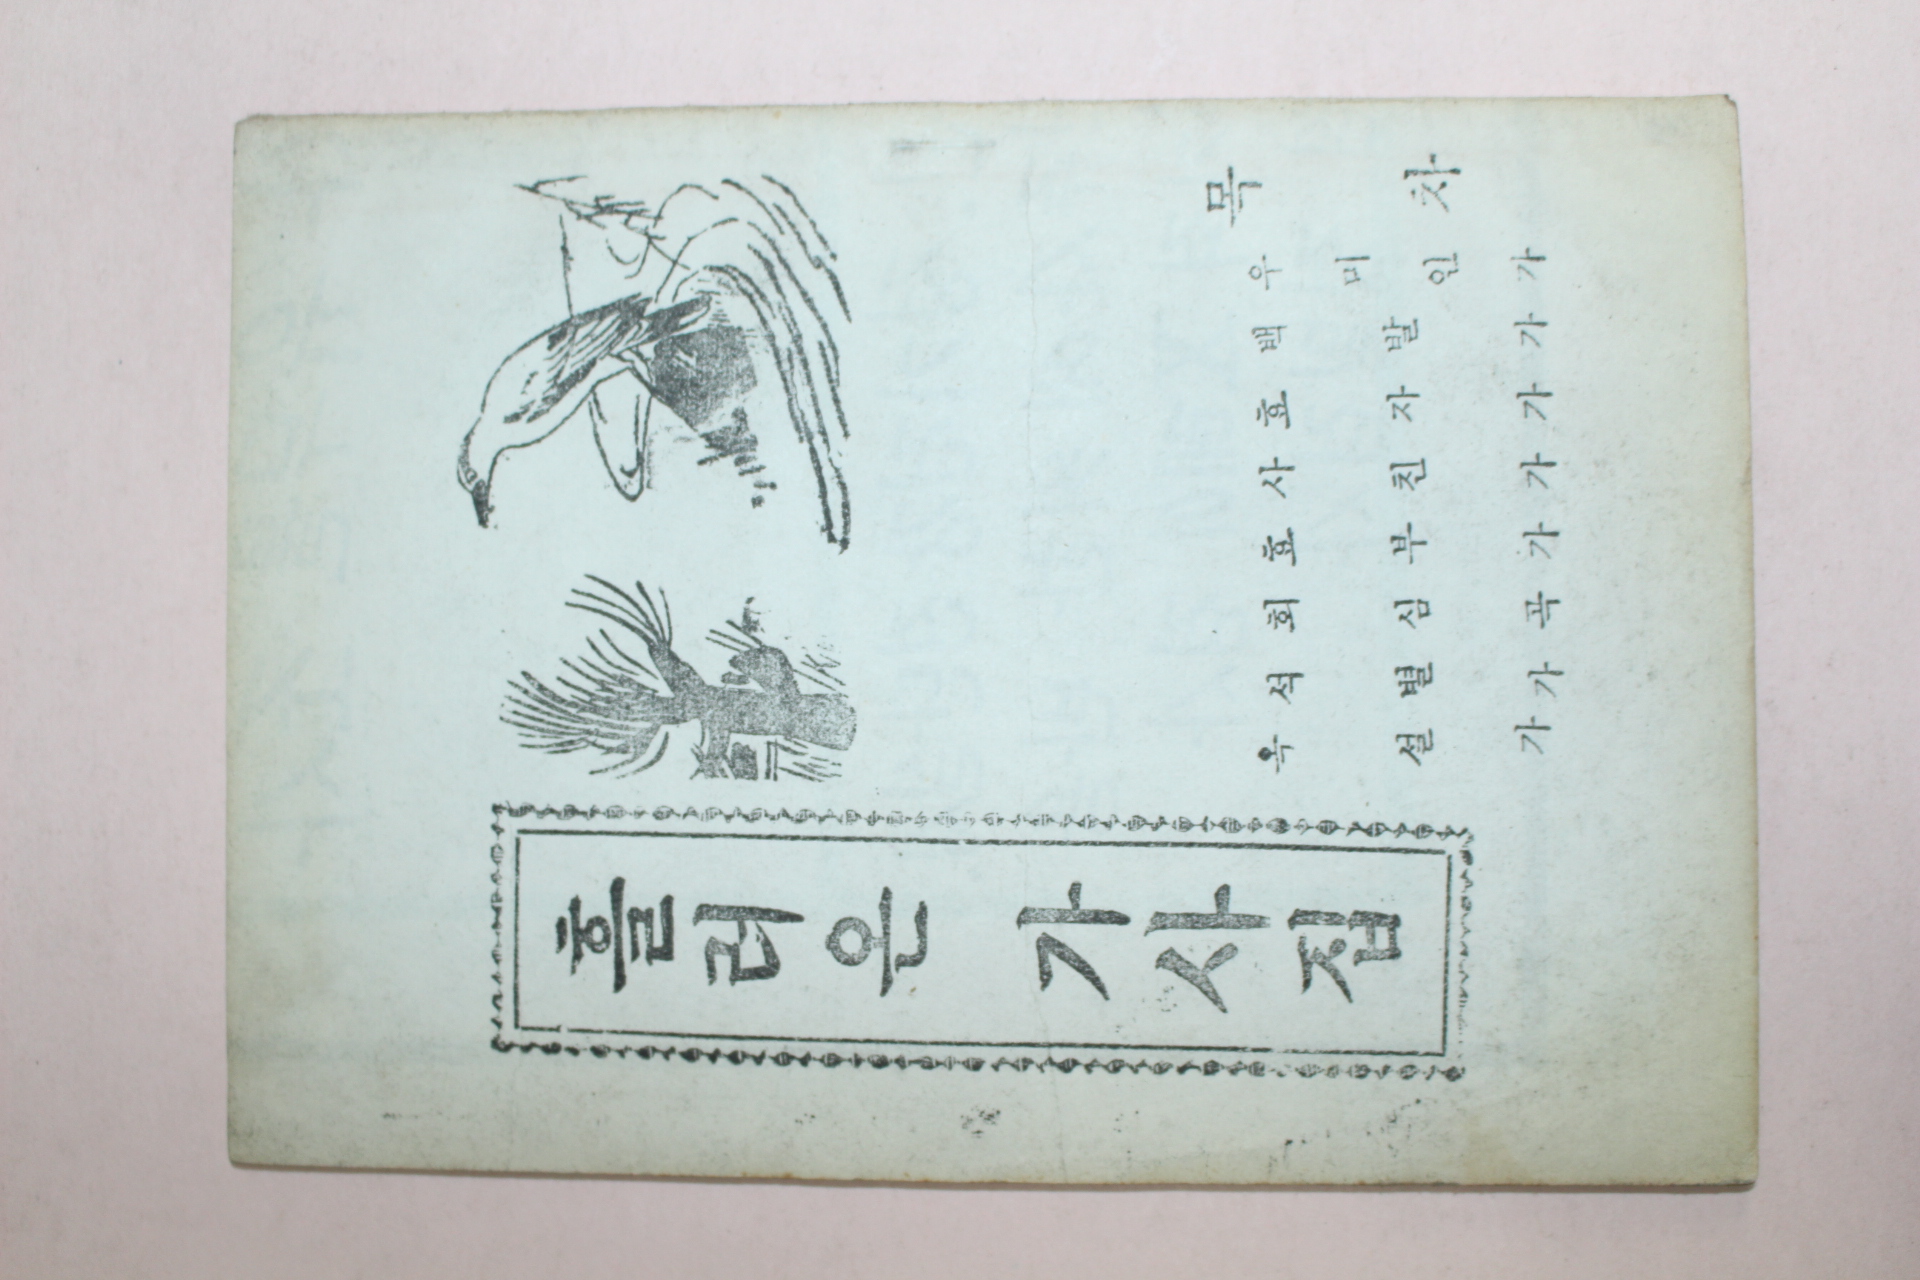 흘러온 가사집
목차
우미인가
백발가
효자가
사친가
효부가
회심곡
석별가
옥설가